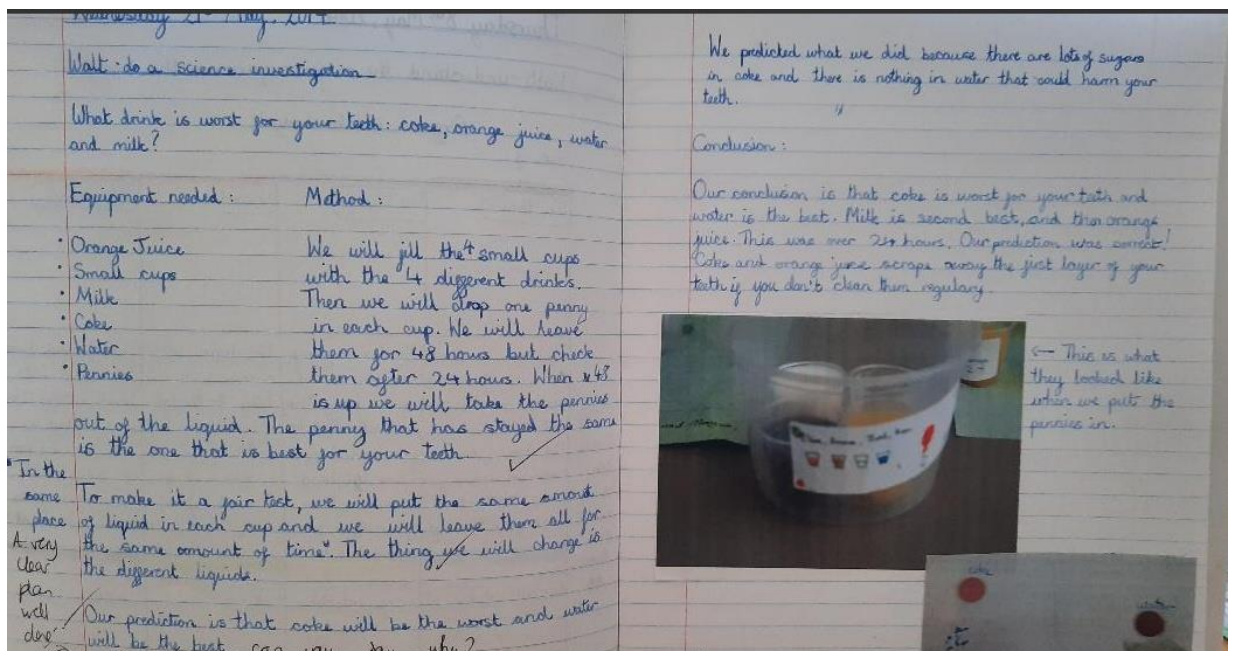 Wednesday 21st May, 2014
Walt: do a science investigation
What drink is worst for your teeth: coke, orange juice, water
and milk?
Equipment needed:
• Orange Juice
• Small cups
• Milk
• Coke
• Water
• Pennies
Method:
We will fill the 4 small cups
with the 4 different drinks.
Then we will drop one penny
in each cup. We will leave
them for 48 hours but check
them after 24 hours. When 48
is up we will take the pennies
out of the liquid. The penny that has stayed the same
is the one that is best for your teeth.
To make it a fair test, we will put the same amout
of liquid in each cup and we will leave them all for
the same amount of time*. The thing we will change is
the different liquids.
*In the
same
place
A very
clear
plan
well
done
Our prediction is that coke will be the worst and water
will be the best. can you say why?
We predicted what we did because there are lots of sugars
in coke and there is nothing in water that could harm your
teeth.
Conclusion:
Our conclusion is that coke is worst for your teeth and
water is the best. Milk is second best, and then orange
juice. This was over 24 hours. Our prediction was correct!
Coke and orange juice scrape away the first layer of your
teeth if you don't clean them regulary.
← This is what
they looked like
when we put the
pennies in.
coke